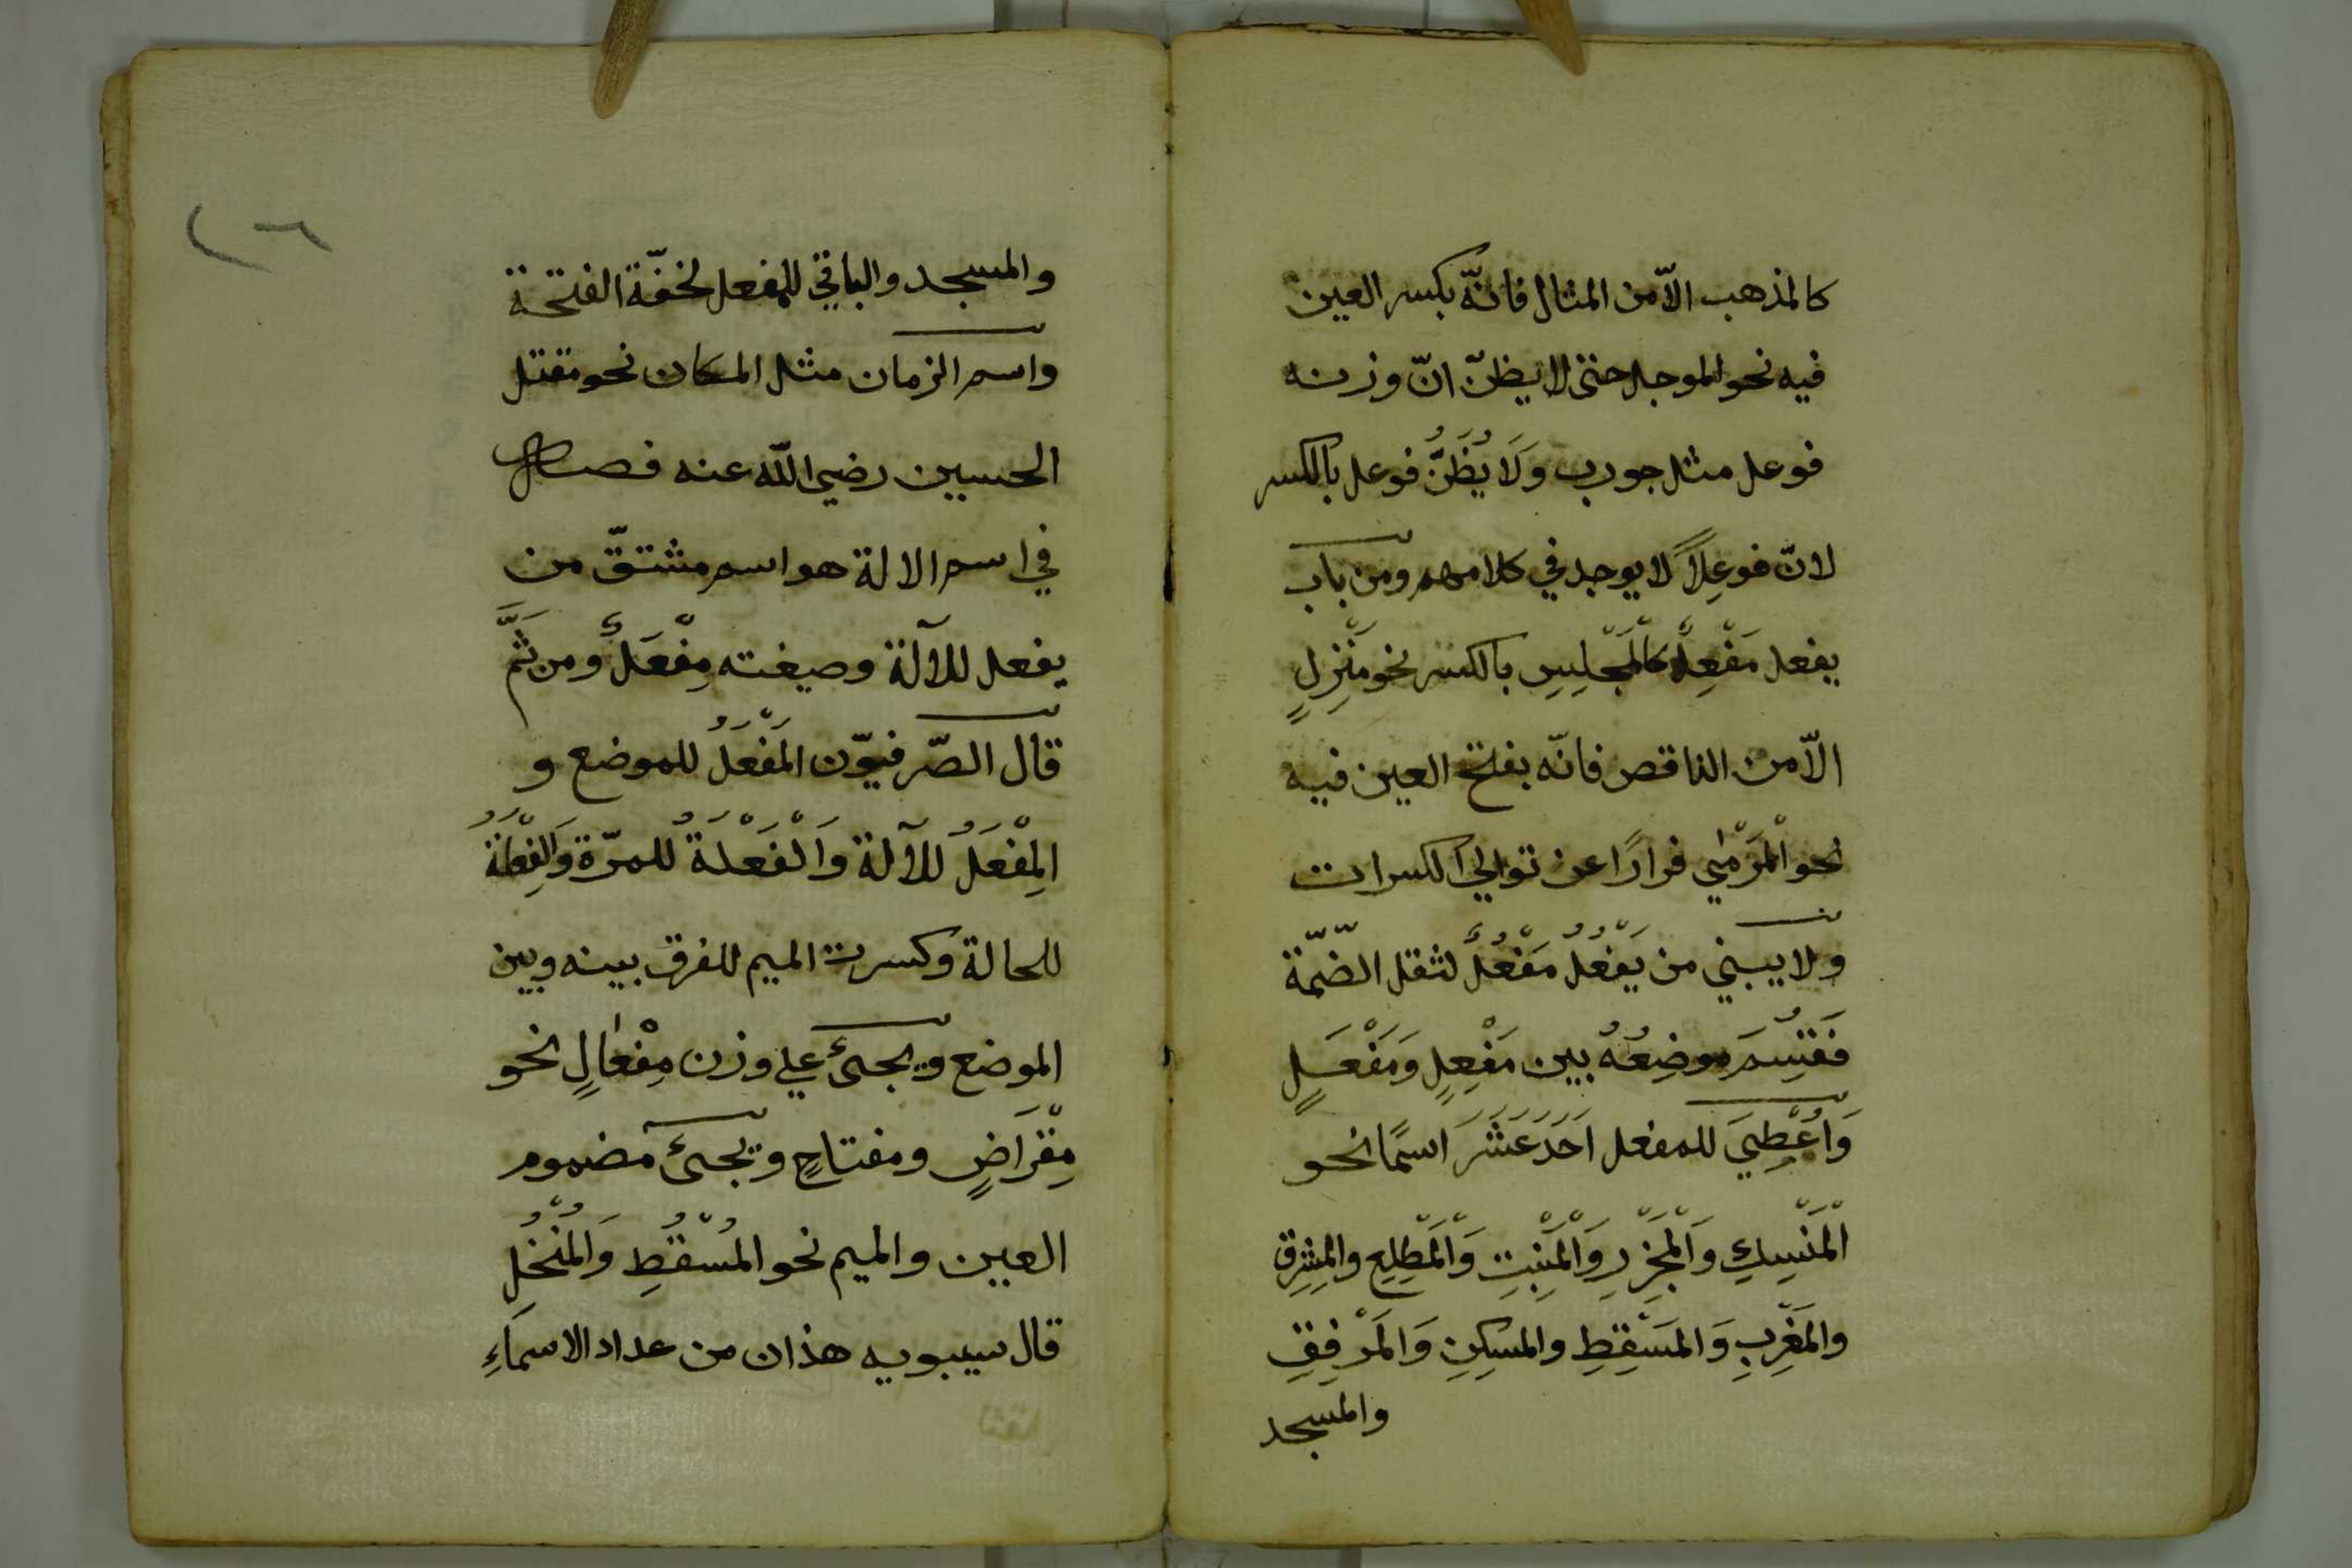 كالمذهب الّا من المثال فانّه بكسر العين
فيه نحو الموجل حتى لا يظنّ انّ وزنه
فوعل مثل جورب وَلَا يُظَنُّ فوعل بالكسر
لانّ فوعِلاً لا يوجد في كلامهم ومن باب
يفعل مَفْعِلٌ كالْمَجْلِسِ بالكسر نحو مَنْزِلٍ
الّا من الناقص فانّه بفتح العين فيه
نحو الْمَرْمٰي فرارًا عن توالي الكسرات
ولا يبني من يَفْعُلُ مَفْعُلٌ لثقل الضّمّة
فَقُسِمَ موضِعُهُ بين مَفْعِلٍ وَمَفْعَلٍ
وَاُعْطِيَ للمفعل اَحَدَ عَشَرَ اسمًا نحو
الْمَنْسِكِ وَالْمَجْزِرِ وَالْمَنْبِتِ وَالْمَطْلِعِ والمشرِقِ
والمَغْرِبِ وَالمَسْقِطِ والمسكِنِ وَالمَرْفِقِ
والمسجد
٢٦
والمسجد والباقي للمفعل لخفّة الفتحة
واسم الزمان مثل المكان نحو مقتل
الحسين رضي الله عنه فصل
في اسم الالة هو اسم مشتقّ من
يفعل للآلة وصيغته مِفْعَلٌ ومن ثَمَّ
قال الصّرفيّون المَفْعَلُ للموضع و
المِفْعَلُ للآلة وَالْفَعْلَةُ للمرّة وَالفِعْلَةُ
للحالة وكسرت الميم للفرق بينه وبين
الموضع ويجىء علي وزن مِفْعَالٍ نحو
مِقْرَاضٍ ومفتاحٍ ويجىء مضموم
العين والميم نحو المُسْقُطِ وَالمُنْخُلِ
قال سيبويه هذان من عداد الاسمَاءِ